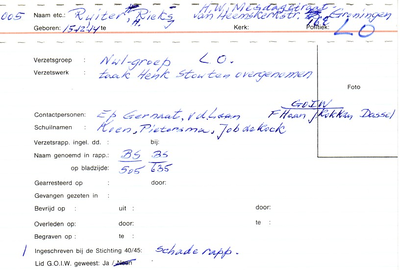 005 Naam etc.: Ruiter, Rieks H. H.W. Mesdagstraat
van Heemskerkstr. Groningen
Geboren: 15-12-14 Kerk: Politiek: LO
Verzetsgroep : Nul-groep LO.
Verzetswerk : taak Henk Stouten overgenomen
Foto
G.O.I.W
Contactpersonen: Ep Gernaat, v.d. Laan F Haan / Dassel
Schuilnamen : Koen, Pietersma, Job de Kock
Verzetsrapp. ingel. dd. : bij:
Naam genoemd in rapp.: BS BS
op bladzijde: 505 635
Gearresteerd op : door:
Gevangen gezeten in :
Bevrijd op : uit : door:
Overleden op: : door: te :
Begraven op : te :
Ingeschreven bij de Stichting 40/45: schade rapp.
Lid G.O.I.W. geweest: Ja / Neen